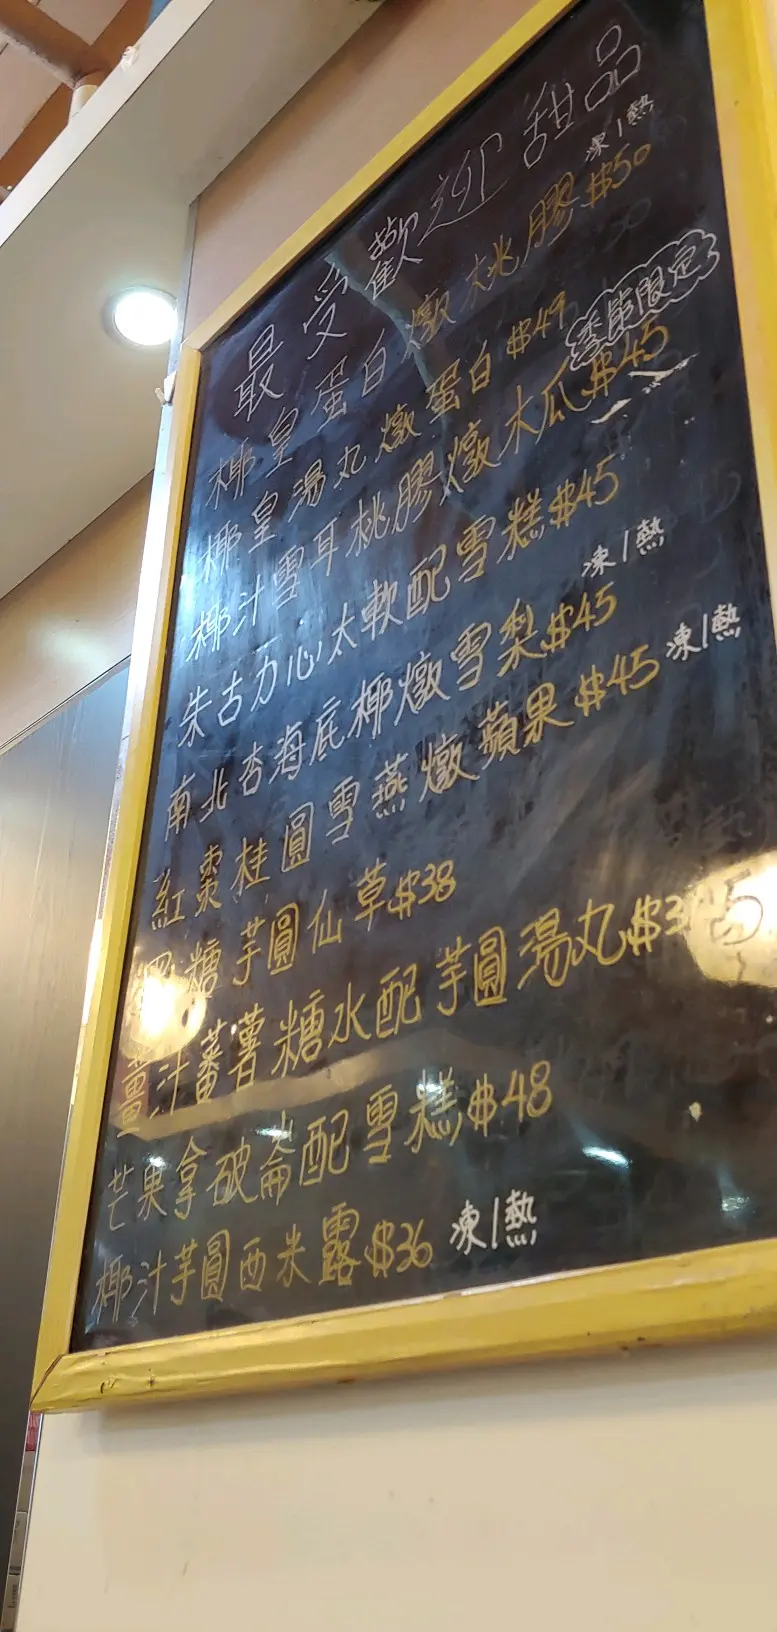 最受歡迎甜品
凍/熱
椰皇蛋白燉桃膠$50
椰皇湯丸燉蛋白$49
季節限定
椰汁雪耳桃膠燉木瓜$45
朱古力心太軟配雪糕$45
凍/熱
南北杏海底椰燉雪梨$45
紅棗桂圓雪燕燉蘋果$45 凍/熱
糖芋圓仙草$38
薑汁蕃薯糖水配芋圓湯丸
芒果拿破崙配雪糕$48
椰汁芋圓西米露$36 凍/熱